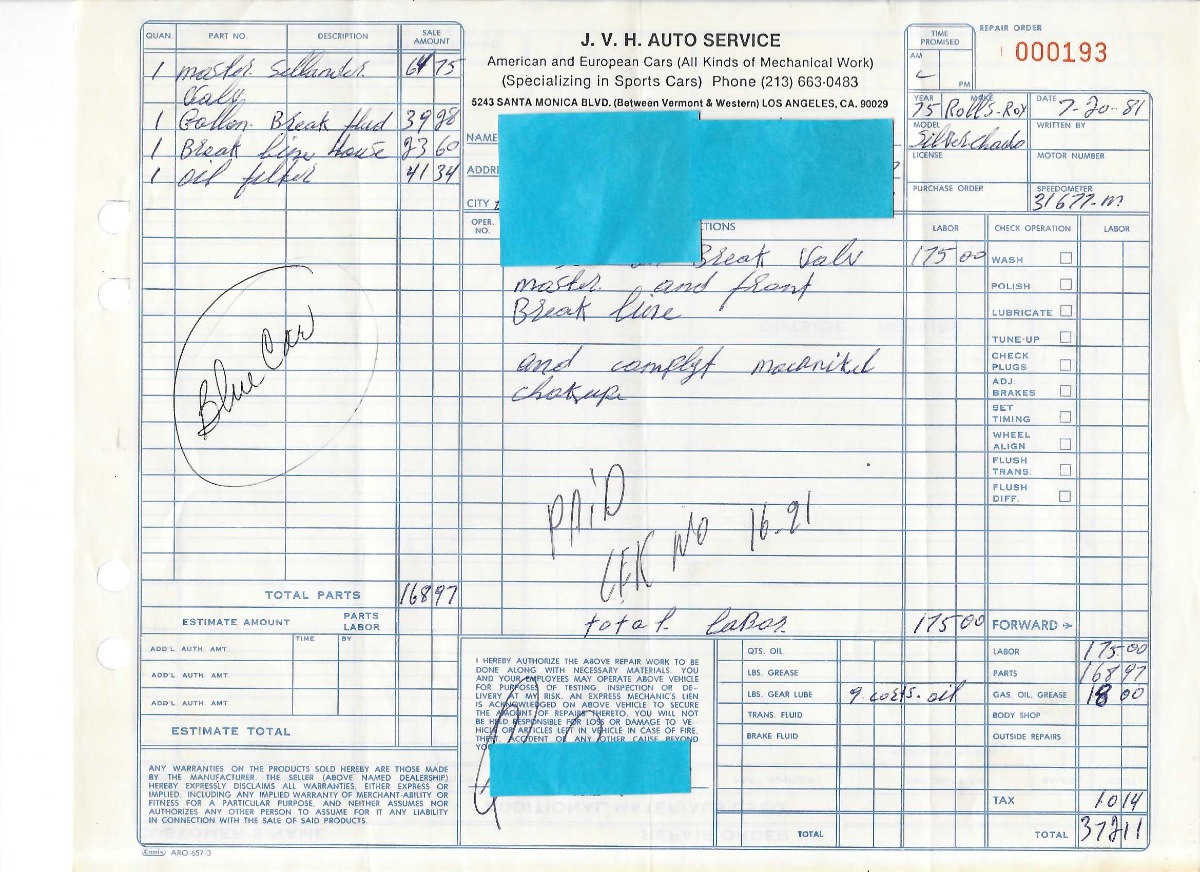 QUAN. PART NO. DESCRIPTION SALE AMOUNT
1 master Sillander 64 75
Valv
1 Gollon Break fluid 39 28
1 Break line House 23 60
1 oil filter 41 34
Blue Car
TOTAL PARTS 168 97
ESTIMATE AMOUNT PARTS
LABOR
TIME BY
ADD'L. AUTH. AMT.
ADD'L. AUTH. AMT.
ADD'L. AUTH. AMT.
ESTIMATE TOTAL
ANY WARRANTIES ON THE PRODUCTS SOLD HEREBY ARE THOSE MADE
BY THE MANUFACTURER. THE SELLER (ABOVE NAMED DEALERSHIP)
HEREBY EXPRESSLY DISCLAIMS ALL WARRANTIES, EITHER EXPRESS OR
IMPLIED, INCLUDING ANY IMPLIED WARRANTY OF MERCHANT-ABILITY OR
FITNESS FOR A PARTICULAR PURPOSE, AND NEITHER ASSUMES NOR
AUTHORIZES ANY OTHER PERSON TO ASSUME FOR IT ANY LIABILITY
IN CONNECTION WITH THE SALE OF SAID PRODUCTS.
Ennis ARO-657-3
J. V. H. AUTO SERVICE
American and European Cars (All Kinds of Mechanical Work)
(Specializing in Sports Cars) Phone (213) 663-0483
5243 SANTA MONICA BLVD. (Between Vermont & Western) LOS ANGELES, CA. 90029
NAME
ADDRE
CITY
TIME PROMISED
AM
PM
REPAIR ORDER
000193
YEAR 75 MAKE Rolls-Rox DATE 7-20-81
MODEL Silver Chado WRITTEN BY
LICENSE MOTOR NUMBER
PURCHASE ORDER SPEEDOMETER 31677-m
OPER. NO. TIONS LABOR CHECK OPERATION LABOR
Break Valv 175 00
master and front
Break line
and complyt macanikel
chakupe
PAiD
CEK NO 16-21
total labor 175 00 FORWARD
WASH
POLISH
LUBRICATE
TUNE-UP
CHECK PLUGS
ADJ. BRAKES
SET TIMING
WHEEL ALIGN
FLUSH TRANS.
FLUSH DIFF.
I HEREBY AUTHORIZE THE ABOVE REPAIR WORK TO BE
DONE ALONG WITH NECESSARY MATERIALS. YOU
AND YOUR EMPLOYEES MAY OPERATE ABOVE VEHICLE
FOR PURPOSES OF TESTING, INSPECTION OR DE-
LIVERY AT MY RISK. AN EXPRESS MECHANIC'S LIEN
IS ACKNOWLEDGED ON ABOVE VEHICLE TO SECURE
THE AMOUNT OF REPAIRS THERETO. YOU WILL NOT
BE HELD RESPONSIBLE FOR LOSS OR DAMAGE TO VE-
HICLE OR ARTICLES LEFT IN VEHICLE IN CASE OF FIRE,
THEFT, ACCIDENT OR ANY OTHER CAUSE BEYOND
YO
QTS. OIL
LBS. GREASE
LBS. GEAR LUBE 9. coets. oil
TRANS. FLUID
BRAKE FLUID
TOTAL
LABOR 175.00
PARTS 168 97
GAS, OIL, GREASE 18 00
BODY SHOP
OUTSIDE REPAIRS
TAX 10 14
TOTAL 372 11